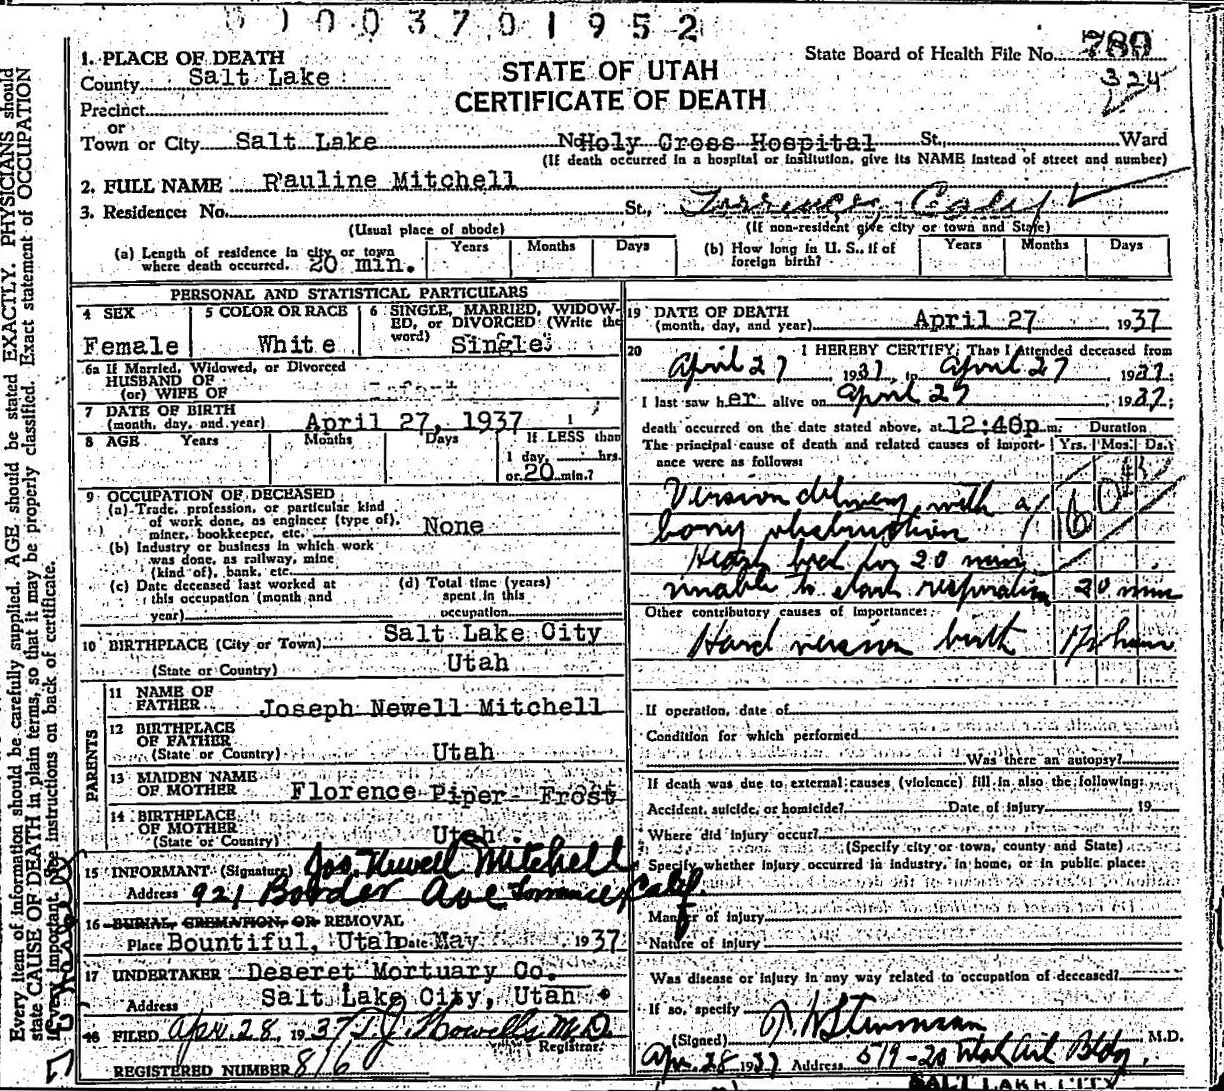 01003701952
1. PLACE OF DEATH
County Salt Lake
Precinct
or
Town or City Salt Lake No. Holy Cross Hospital St., Ward
(If death occurred in a hospital or institution, give its NAME instead of street and number)
STATE OF UTAH
CERTIFICATE OF DEATH
State Board of Health File No. 780
324
2. FULL NAME Pauline Mitchell
3. Residence: No. St., Torrence, Calif
(Usual place of abode) (If non-resident give city or town and State)
(a) Length of residence in city or town where death occurred. 20 min. Years Months Days
(b) How long in U. S., if of foreign birth? Years Months Days
PERSONAL AND STATISTICAL PARTICULARS
4 SEX Female
5 COLOR OR RACE White
6 SINGLE, MARRIED, WIDOW-
ED, or DIVORCED (Write the
word) Single
6a If Married, Widowed, or Divorced
HUSBAND OF
(or) WIFE OF Infant
7 DATE OF BIRTH
(month, day, and year) April 27, 1937
8 AGE Years Months Days If LESS than
1 day, hrs.
or 20 min.?
9 OCCUPATION OF DECEASED
(a) Trade, profession, or particular kind
of work done, as engineer (type of),
miner, bookkeeper, etc. None
(b) Industry or business in which work
was done, as railway, mine
(kind of), bank, etc.
(c) Date deceased last worked at
this occupation (month and
year)
(d) Total time (years)
spent in this
occupation
10 BIRTHPLACE (City or Town) Salt Lake City
(State or Country) Utah
PARENTS
11 NAME OF
FATHER Joseph Newell Mitchell
12 BIRTHPLACE
OF FATHER
(State or Country) Utah
13 MAIDEN NAME
OF MOTHER Florence Piper Frost
14 BIRTHPLACE
OF MOTHER
(State or Country) Utah
15 INFORMANT (Signature) Jos. Newell Mitchell
Address 921 Border Ave Torrence, Calif.
16 BURIAL, CREMATION, OR REMOVAL
Place Bountiful, Utah Date May 1937
17 UNDERTAKER Deseret Mortuary Co.
Address Salt Lake City, Utah
18 FILED Apr. 28, 1937 T. J. Howells M.D.
Registrar.
REGISTERED NUMBER 816
19 DATE OF DEATH
(month, day, and year) April 27 1937
20 I HEREBY CERTIFY, That I attended deceased from
April 27, 1937, to April 27, 1937
I last saw her alive on April 27, 1937;
death occurred on the date stated above, at 12:40p m. Duration
The principal cause of death and related causes of import-
ance were as follows: Yrs. Mos. Ds.
Version delivery with a
bony obstruction
Heart beat for 20 min
unable to start respiration 20 min
Other contributory causes of importance:
Hard version birth 1/2 hour
If operation, date of
Condition for which performed
Was there an autopsy?
If death was due to external causes (violence) fill in also the following:
Accident, suicide, or homicide? Date of injury 19
Where did injury occur?
(Specify city or town, county and State)
Specify whether injury occurred in industry, in home, or in public place:
Manner of injury
Nature of injury
Was disease or injury in any way related to occupation of deceased?
If so, specify
(Signed) M.D.
Apr. 28 1937 Address 519-20 Bldg.
SALT LAKE CITY
Every item of information should be carefully supplied. AGE should be stated EXACTLY. PHYSICIANS should
state CAUSE OF DEATH in plain terms, so that it may be properly classified. Exact statement of OCCUPATION
is very important. See instructions on back of certificate.